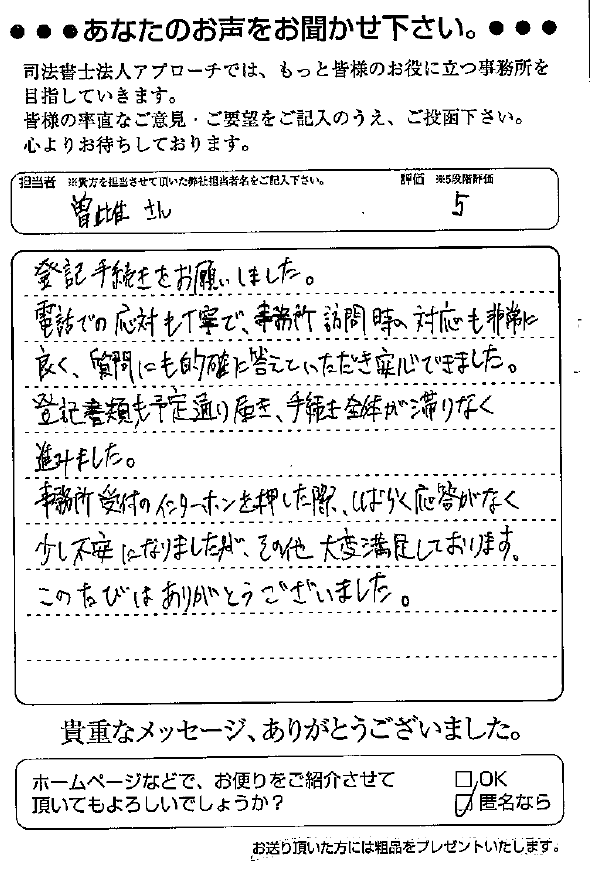 ●●●あなたのお声をお聞かせ下さい。●●●
司法書士法人アプローチでは、もっと皆様のお役に立つ事務所を
目指していきます。
皆様の率直なご意見・ご要望をご記入のうえ、ご投函下さい。
心よりお待ちしております。
担当者 ※貴方を担当させて頂いた弊社担当者名をご記入下さい。 評価 ※5段階評価
曽比雌 さん 5
登記手続きをお願いしました。
電話での応対も丁寧で、事務所訪問時の対応も非常に
良く、質問にも的確に答えていただき安心できました。
登記書類も予定通り届き、手続き全体が滞りなく
進みました。
事務所受付のインターホンを押した際、しばらく応答がなく
少し不安になりましたが、その他大変満足しております。
このたびはありがとうございました。
貴重なメッセージ、ありがとうございました。
ホームページなどで、お便りをご紹介させて
頂いてもよろしいでしょうか？
□OK
☑匿名なら
お送り頂いた方には粗品をプレゼントいたします。